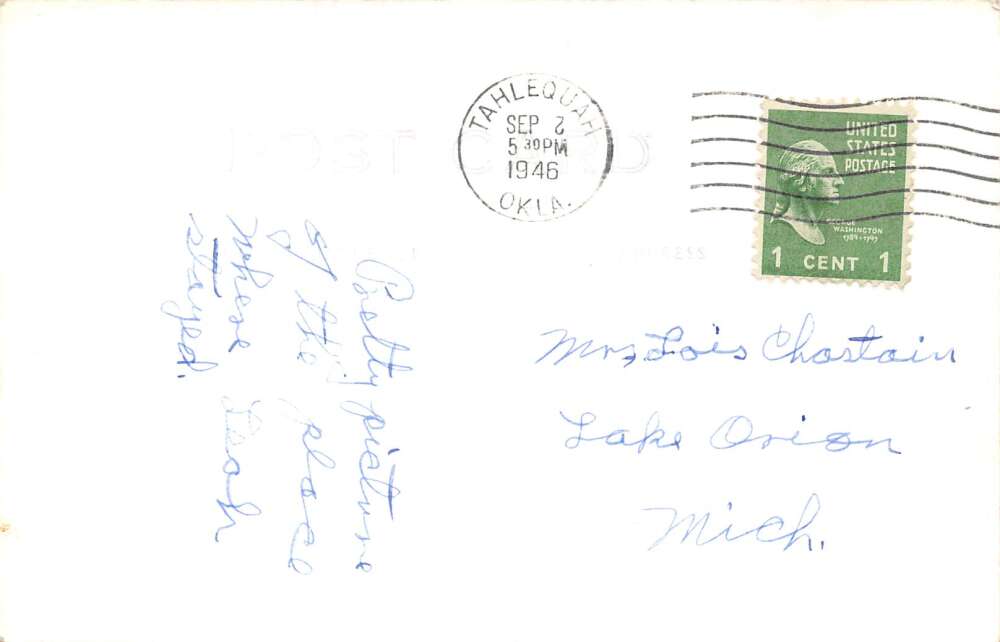 TAHLEQUAH
SEP 2
5 30 PM
1946
OKLA.
UNITED
STATES
POSTAGE
GEORGE
WASHINGTON
1789-1797
1 CENT 1
Mrs, Lois Chastain
Lake Orion
Mich.
picture
of the place
where Leah
stayed.